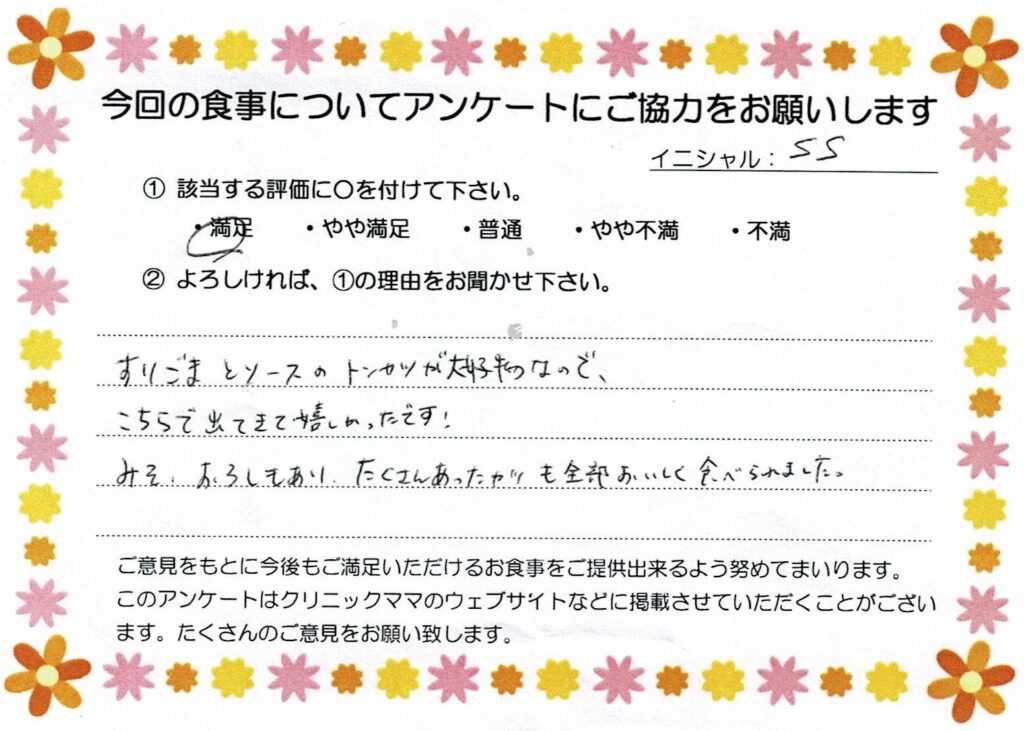 今回の食事についてアンケートにご協力をお願いします
イニシャル：SS
① 該当する評価に〇を付けて下さい。
・満足 ・やや満足 ・普通 ・やや不満 ・不満
② よろしければ、①の理由をお聞かせ下さい。
すりごまとソースのトンカツが大好物なので、
こちらで出てきて嬉しかったです!
みそ、おろしもあり、たくさんあったカツも全部おいしく食べられました。
ご意見をもとに今後もご満足いただけるお食事をご提供出来るよう努めてまいります。
このアンケートはクリニックママのウェブサイトなどに掲載させていただくことがござい
ます。たくさんのご意見をお願い致します。